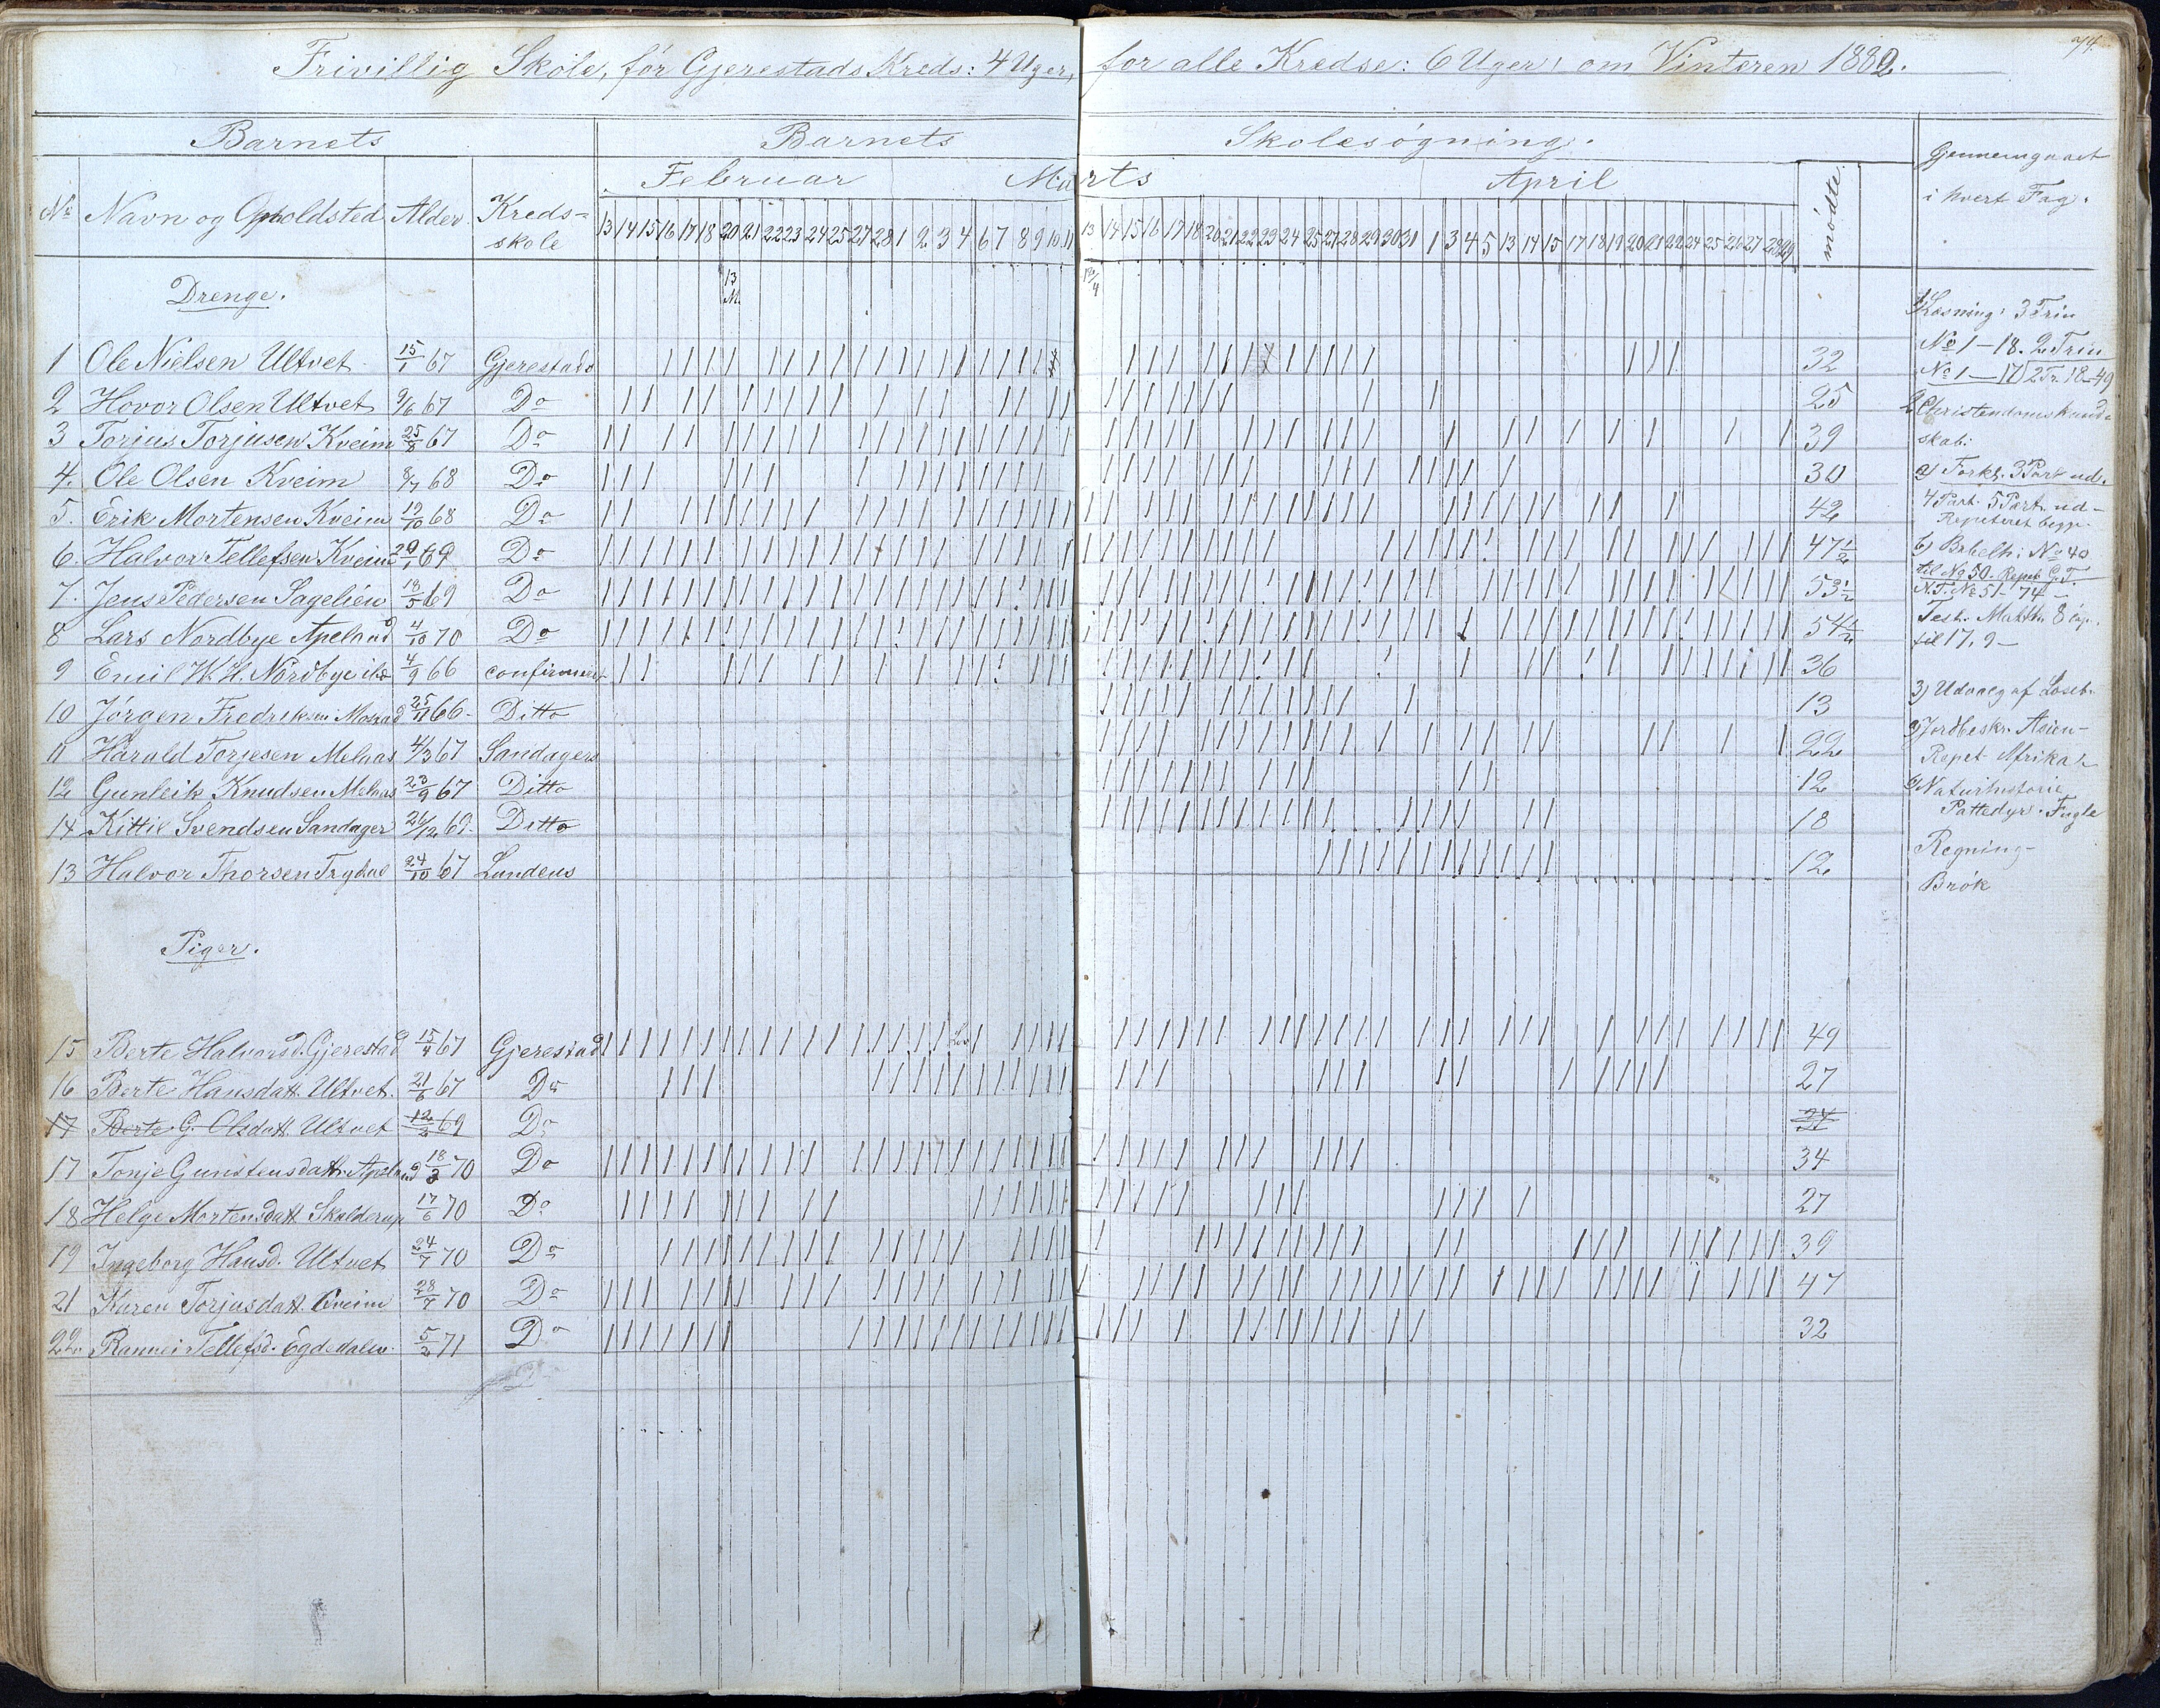 74.
Frivillig Skole, for Gjerestads Kreds: 4 Uger, for alle Kredse: 6 Uger, om Vinteren 1882.
Barnets Barnets Skolesøgning.
Gjennemgaaet
i hvert Fag.
Februar Marts April
No Navn og Opholdsted Alder Kreds-
skole
mødte.
13 14 15 16 17 18 20 21 22 23 24 25 27 28 1 2 3 4 6 7 8 9 10 11 13 14 15 16 17 18 20 21 22 23 24 25 27 28 29 30 31 1 3 4 5 13 14 15 17 18 19 20 21 22 24 25 26 27 28 29
Drenge.
1 Ole Nielsen Ultvet 15/1 67 Gjerestads 32
2 Hovor Olsen Ultvet 9/6 67 Do 25
3 Torjus Torjusen Kveim 25/8 67 Do 39
4. Ole Olsen Kveim 8/7 68 Do 30
5. Erik Mortensen Kveim 12/10 68 Do 42
6. Halvor Tellefsen Kveim 29/1 69 Do 47 1/2
7. Jens Pedersen Sagelien 18/5 69 Do 53 1/2
8 Lars Nordbye Apeland 4/10 70 Do 54 1/2
9 Emil W. H. Nordbye ikke 4/9 66 confirmeret 36
10 Jørgen Fredriksen 25/11 66 Ditto 13
11 Harald Torjesen Melaas 4/3 67 Sandagers 22
12 Gunleik Knudsen Melaas 23/9 67 Ditto 12
14 Kittil Svendsen Sandager 26/12 69 Ditto 18
13 Halvor Thorsen Trydal 24/10 67 Lundens 12
Piger.
15 Berte Halvorsd. Gjerestad 15/4 67 Gjerestad 49
16 Berte Hansdatt. Ultvet. 21/6 67 Do 27
17 Berte G. Olsdatt. Ultvet 12/2 69 Do
17 Tonje Gunstensdatt. Apeland 18/3 70 Do 34
18 Helge Mortensdatt Skalderup 17/6 70 Do 27
19 Ingeborg Hansd. Ultvet 24/7 70 Do 39
21 Karen Torjusdatt. Kveim 28/7 70 Do 47
22 Rannei Tellefsd. Egdedalen 5/2 71 Do 32
1) Læsning: 3 Trin
No 1 – 18. 2 Trin
No 1 – 17 2 Tr. 18–49
2 Christendomskund-
skab:
a) Forkl. 3 Part ud.
4 Part. 5 Part. ud –
Repeteret begge.
b) Bibelh: No 40
til No 50. Repet. G.T.
N.T. No 51 – 74 –
Test. Matth. 8 Cap.
til 17. 9 –
3) Udvalg af Læseb.
Jordbeskr. Asien –
Repet. Afrika
Naturhistorie
Pattedyr. Fugle
Regning –
Brøk